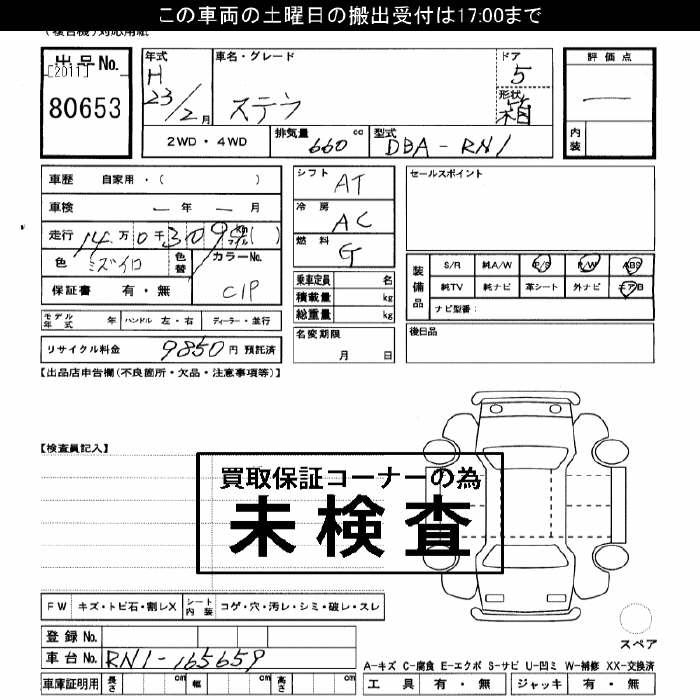 この車両の土曜日の搬出受付は17:00まで
出品No.
[2011]
80653
年式
H
23/2月
車名・グレード
ステラ
ドア
5
形状
箱
評価点
—
内装
2WD・4WD
排気量 660 cc
型式 DBA-RN1
車歴 自家用・( )
車検 — 年 — 月
走行 14万0千309 km マイル ( )
色 ミズイロ
色替
カラーNo.
C1P
保証書 有・無
シフト AT
冷房 AC
燃料 G
乗車定員 名
積載量 kg
総重量 kg
セールスポイント
装備品
S/R 純A/W P/S P/W ABS
純TV 純ナビ 革シート 外ナビ エアB
ナビ型番:
モデル年式 年 ハンドル 左・右 ディーラー・並行
名変期限
月 日
後日品
リサイクル料金 9850円 預託済
【出品店申告欄(不良箇所・欠品・注意事項等)】
【検査員記入】
買取保証コーナーの為
未検査
FW キズ・トビ石・割レX シート内装 コゲ・穴・汚レ・シミ・破レ・スレ
登録No.
車台No. RN1-165659
車庫証明用 長さ cm 幅 cm 高さ cm
スペア
A-キズ C-腐食 E-エクボ S-サビ U-凹ミ W-補修 XX-交換済
工具 有・無 ジャッキ 有・無